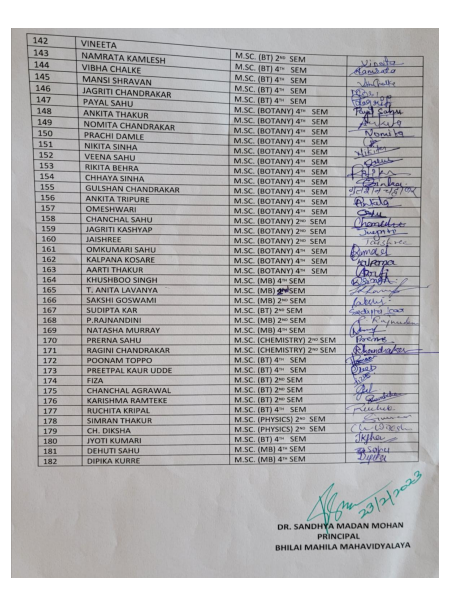 142 VINEETA M.SC. (BT) 2ND SEM Vineeta
143 NAMRATA KAMLESH M.SC. (BT) 4TH SEM Namrata
144 VIBHA CHALKE M.SC. (BT) 4TH SEM
145 MANSI SHRAVAN M.SC. (BT) 4TH SEM
146 JAGRITI CHANDRAKAR M.SC. (BT) 4TH SEM Jagriti
147 PAYAL SAHU M.SC. (BOTANY) 4TH SEM Payal Sahu
148 ANKITA THAKUR M.SC. (BOTANY) 4TH SEM
149 NOMITA CHANDRAKAR M.SC. (BOTANY) 4TH SEM Nomita
150 PRACHI DAMLE M.SC. (BOTANY) 4TH SEM
151 NIKITA SINHA M.SC. (BOTANY) 4TH SEM Nikita
152 VEENA SAHU M.SC. (BOTANY) 4TH SEM
153 RIKITA BEHRA M.SC. (BOTANY) 4TH SEM
154 CHHAYA SINHA M.SC. (BOTANY) 4TH SEM
155 GULSHAN CHANDRAKAR M.SC. (BOTANY) 4TH SEM
156 ANKITA TRIPURE M.SC. (BOTANY) 4TH SEM Ankita
157 OMESHWARI M.SC. (BOTANY) 4TH SEM
158 CHANCHAL SAHU M.SC. (BOTANY) 2ND SEM
159 JAGRITI KASHYAP M.SC. (BOTANY) 2ND SEM
160 JAISHREE M.SC. (BOTANY) 2ND SEM Jaishree
161 OMKUMARI SAHU M.SC. (BOTANY) 4TH SEM
162 KALPANA KOSARE M.SC. (BOTANY) 4TH SEM
163 AARTI THAKUR M.SC. (BOTANY) 4TH SEM Aarti
164 KHUSHBOO SINGH M.SC. (MB) 4TH SEM
165 T. ANITA LAVANYA M.SC. (MB) SEM
166 SAKSHI GOSWAMI M.SC. (MB) 2ND SEM
167 SUDIPTA KAR M.SC. (BT) 2ND SEM
168 P.RAJNANDINI M.SC. (MB) 2ND SEM
169 NATASHA MURRAY M.SC. (MB) 4TH SEM
170 PRERNA SAHU M.SC. (CHEMISTRY) 2ND SEM
171 RAGINI CHANDRAKAR M.SC. (CHEMISTRY) 2ND SEM RChandrakar
172 POONAM TOPPO M.SC. (BT) 4TH SEM
173 PREETPAL KAUR UDDE M.SC. (BT) 4TH SEM
174 FIZA M.SC. (BT) 2ND SEM
175 CHANCHAL AGRAWAL M.SC. (BT) 2ND SEM
176 KARISHMA RAMTEKE M.SC. (BT) 2ND SEM
177 RUCHITA KRIPAL M.SC. (BT) 4TH SEM
178 SIMRAN THAKUR M.SC. (PHYSICS) 2ND SEM
179 CH. DIKSHA M.SC. (PHYSICS) 2ND SEM
180 JYOTI KUMARI M.SC. (BT) 4TH SEM
181 DEHUTI SAHU M.SC. (MB) 4TH SEM
182 DIPIKA KURRE M.SC. (MB) 4TH SEM
23/2/2023
DR. SANDHYA MADAN MOHAN
PRINCIPAL
BHILAI MAHILA MAHAVIDYALAYA